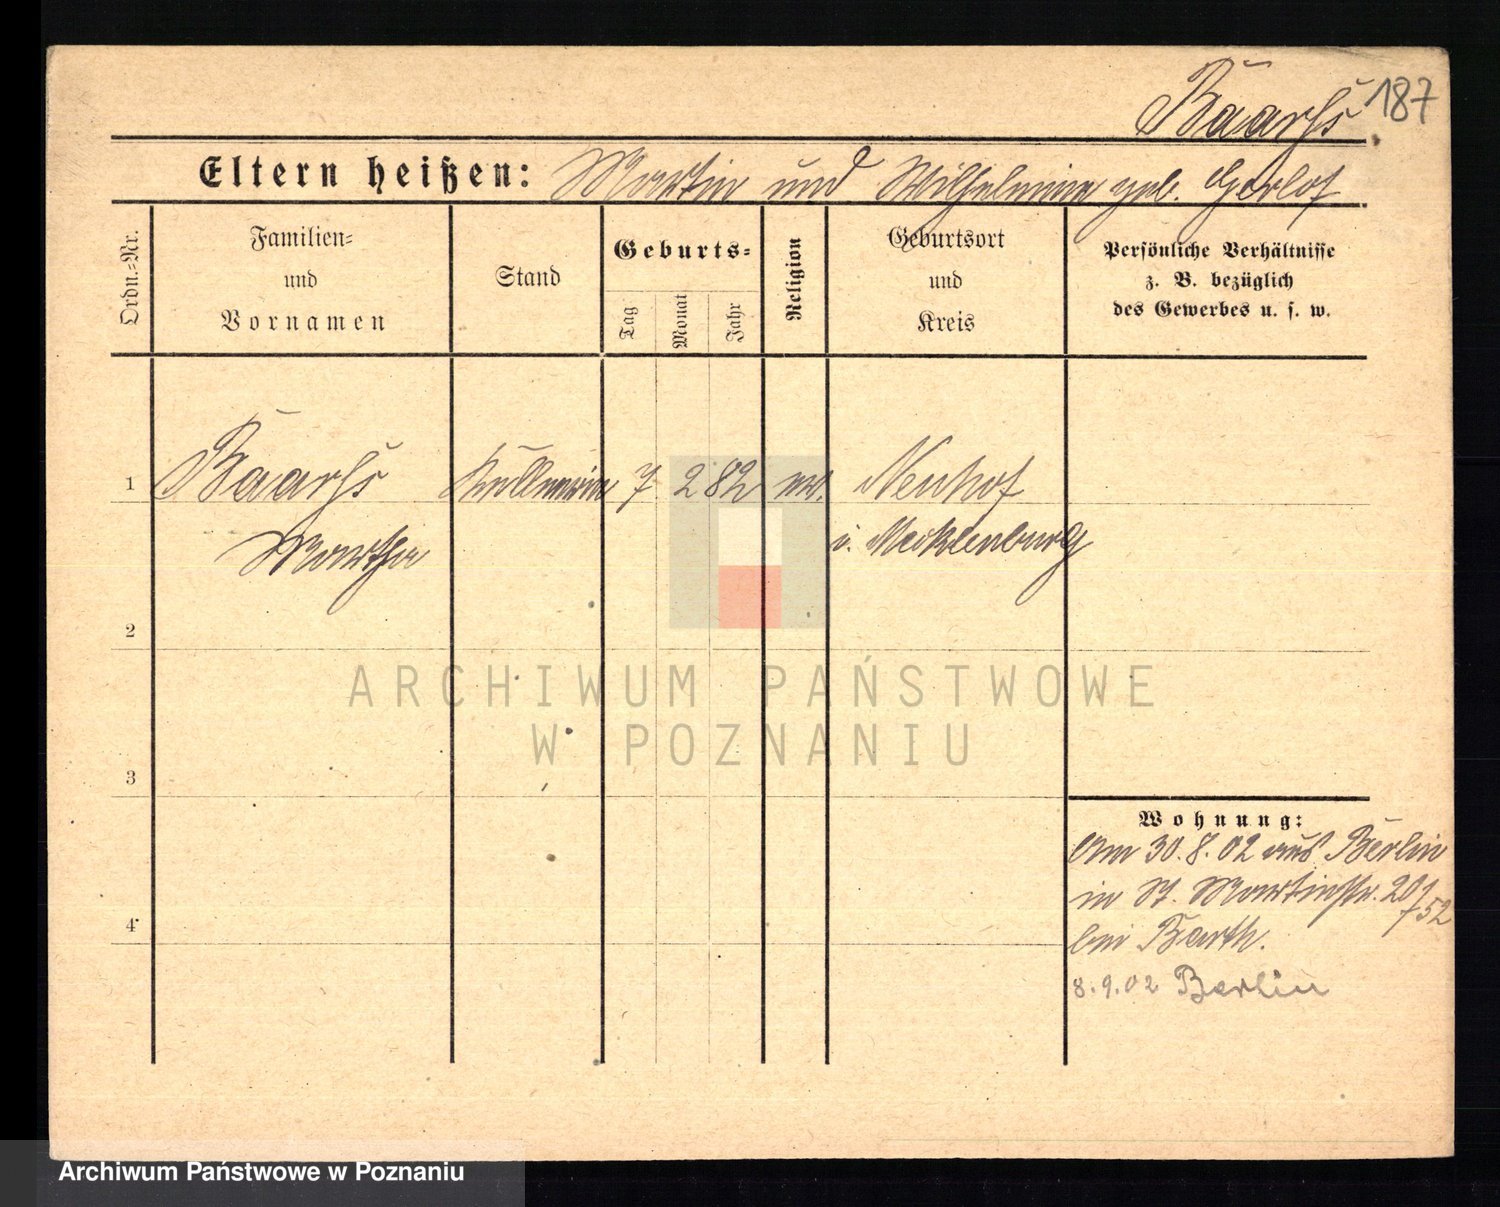 Baarß 187
Eltern heißen: Martin und Wilhelmine geb. Gerlof
Ordn.=Nr.
Familien=
und
Vornamen
Stand
Geburts=
Tag
Monat
Jahr
Religion
Geburtsort
und
Kreis
Persönliche Verhältnisse
z. B. bezüglich
des Gewerbes u. s. w.
1 Baarß Kellnerin 7 2 82 ev. Neuhof
Martha i. Mecklenburg
2
3
4
Wohnung:
Am 30.8.02 aus Berlin
in St. Martinstr. 20/52
bei Barth.
8.9.02 Berlin
ARCHIWUM PAŃSTWOWE
W POZNANIU
Archiwum Państwowe w Poznaniu